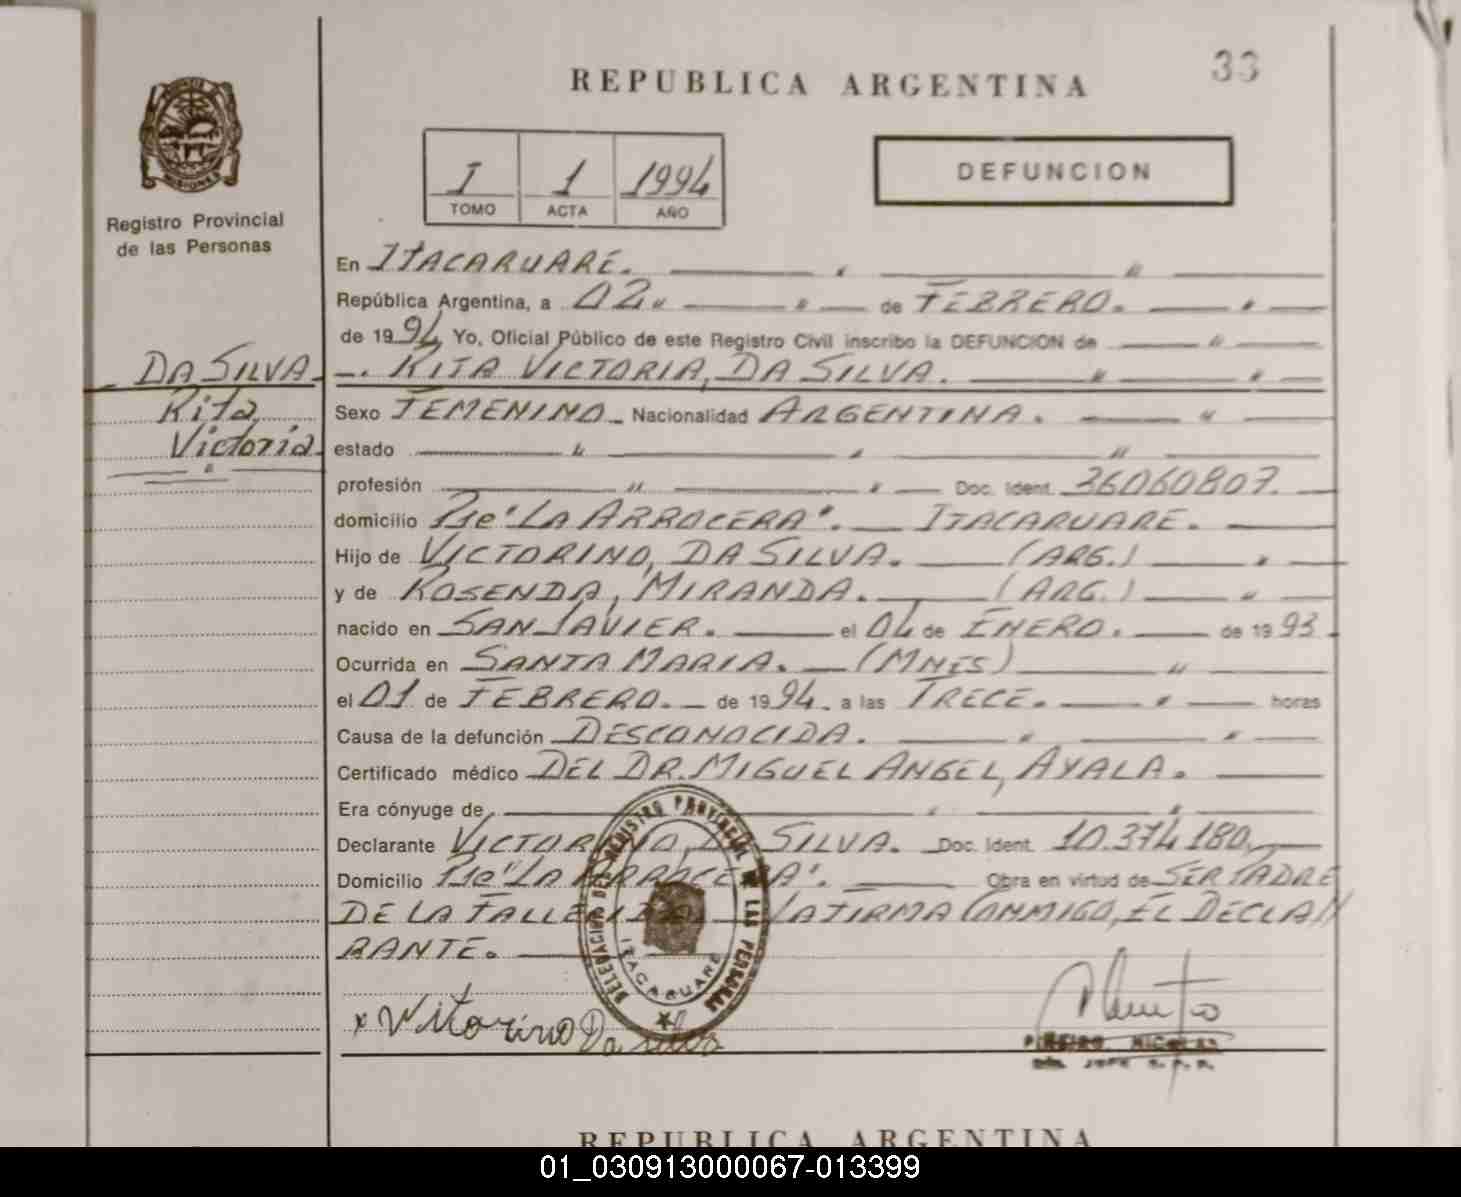 33
REPUBLICA ARGENTINA
I 1 1994
TOMO ACTA AÑO
DEFUNCION
MISIONES
Registro Provincial
de las Personas
En ITACARUARÉ.
República Argentina, a 02 de FEBRERO.
de 1994 Yo, Oficial Público de este Registro Civil inscribo la DEFUNCION de
DA SILVA RITA VICTORIA, DA SILVA.
Rita Sexo FEMENINO Nacionalidad ARGENTINA.
Victoria estado
profesión Doc. Ident. 36060807.
domicilio "LA ARROCERA". ITACARUARE.
Hijo de VICTORINO, DA SILVA. (ARG.)
y de ROSENDA, MIRANDA. (ARG.)
nacido en SAN JAVIER. el 04 de ENERO. de 1993
Ocurrida en SANTA MARIA. (MNES)
el 01 de FEBRERO. de 1994. a las TRECE. horas
Causa de la defunción DESCONOCIDA.
Certificado médico DEL DR. MIGUEL ANGEL, AYALA.
Era cónyuge de
Declarante VICTORINO, DA SILVA. Doc. Ident. 10.374180,
Domicilio "LA ARROCERA". Obra en virtud de SER PADRE
DE LA FALLECIDA LA FIRMA CONMIGO, EL DECLA//
RANTE.
DELEGACION DEL REGISTRO PROVINCIAL DE LAS PERSONAS
ITACARUARE
x Vitorino Da silva
PIÑEIRO NICOLAS
REPUBLICA ARGENTINA
01_030913000067-013399